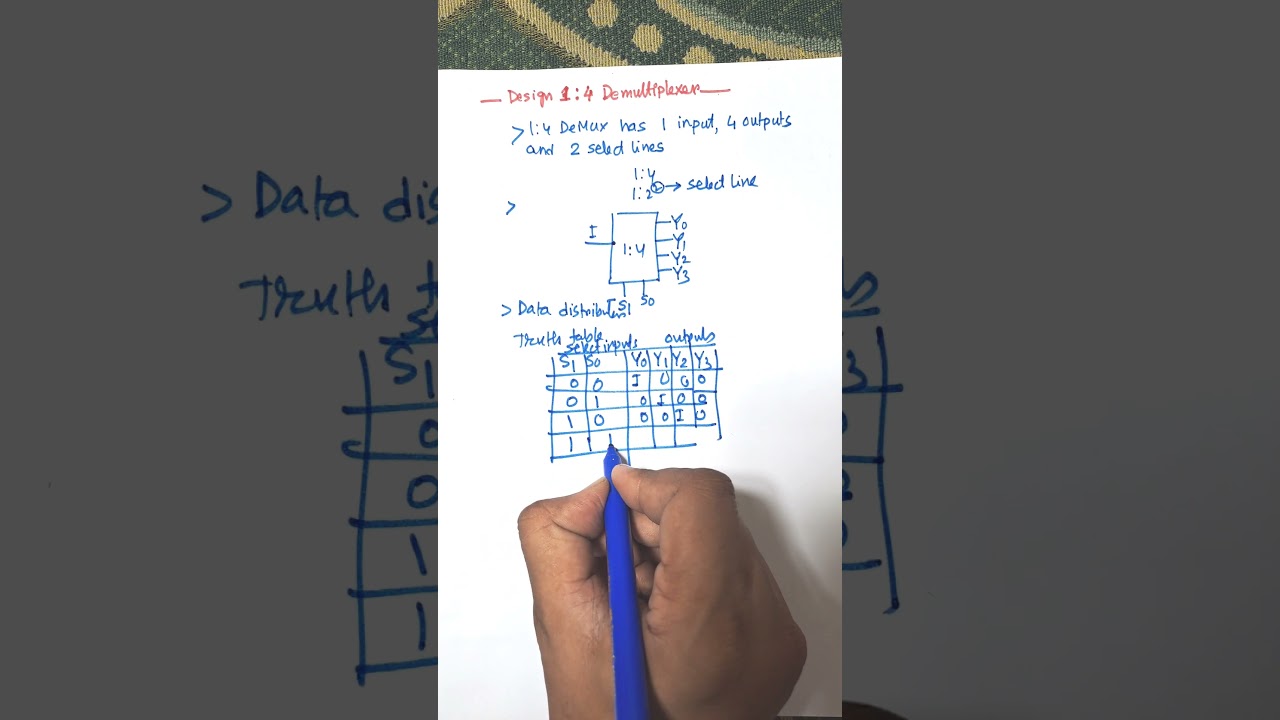 Design 1:4 Demultiplexer
> 1:4 DeMux has 1 input, 4 outputs
and 2 select lines
1:4
1:2² → select line
>
I 1:4 Y0
Y1
Y2
Y3
S1 S0
> Data distributor
Truth table
select inputs outputs
S1 S0 Y0 Y1 Y2 Y3
0 0 I 0 0 0
0 1 0 I 0 0
1 0 0 0 I 0
1 1